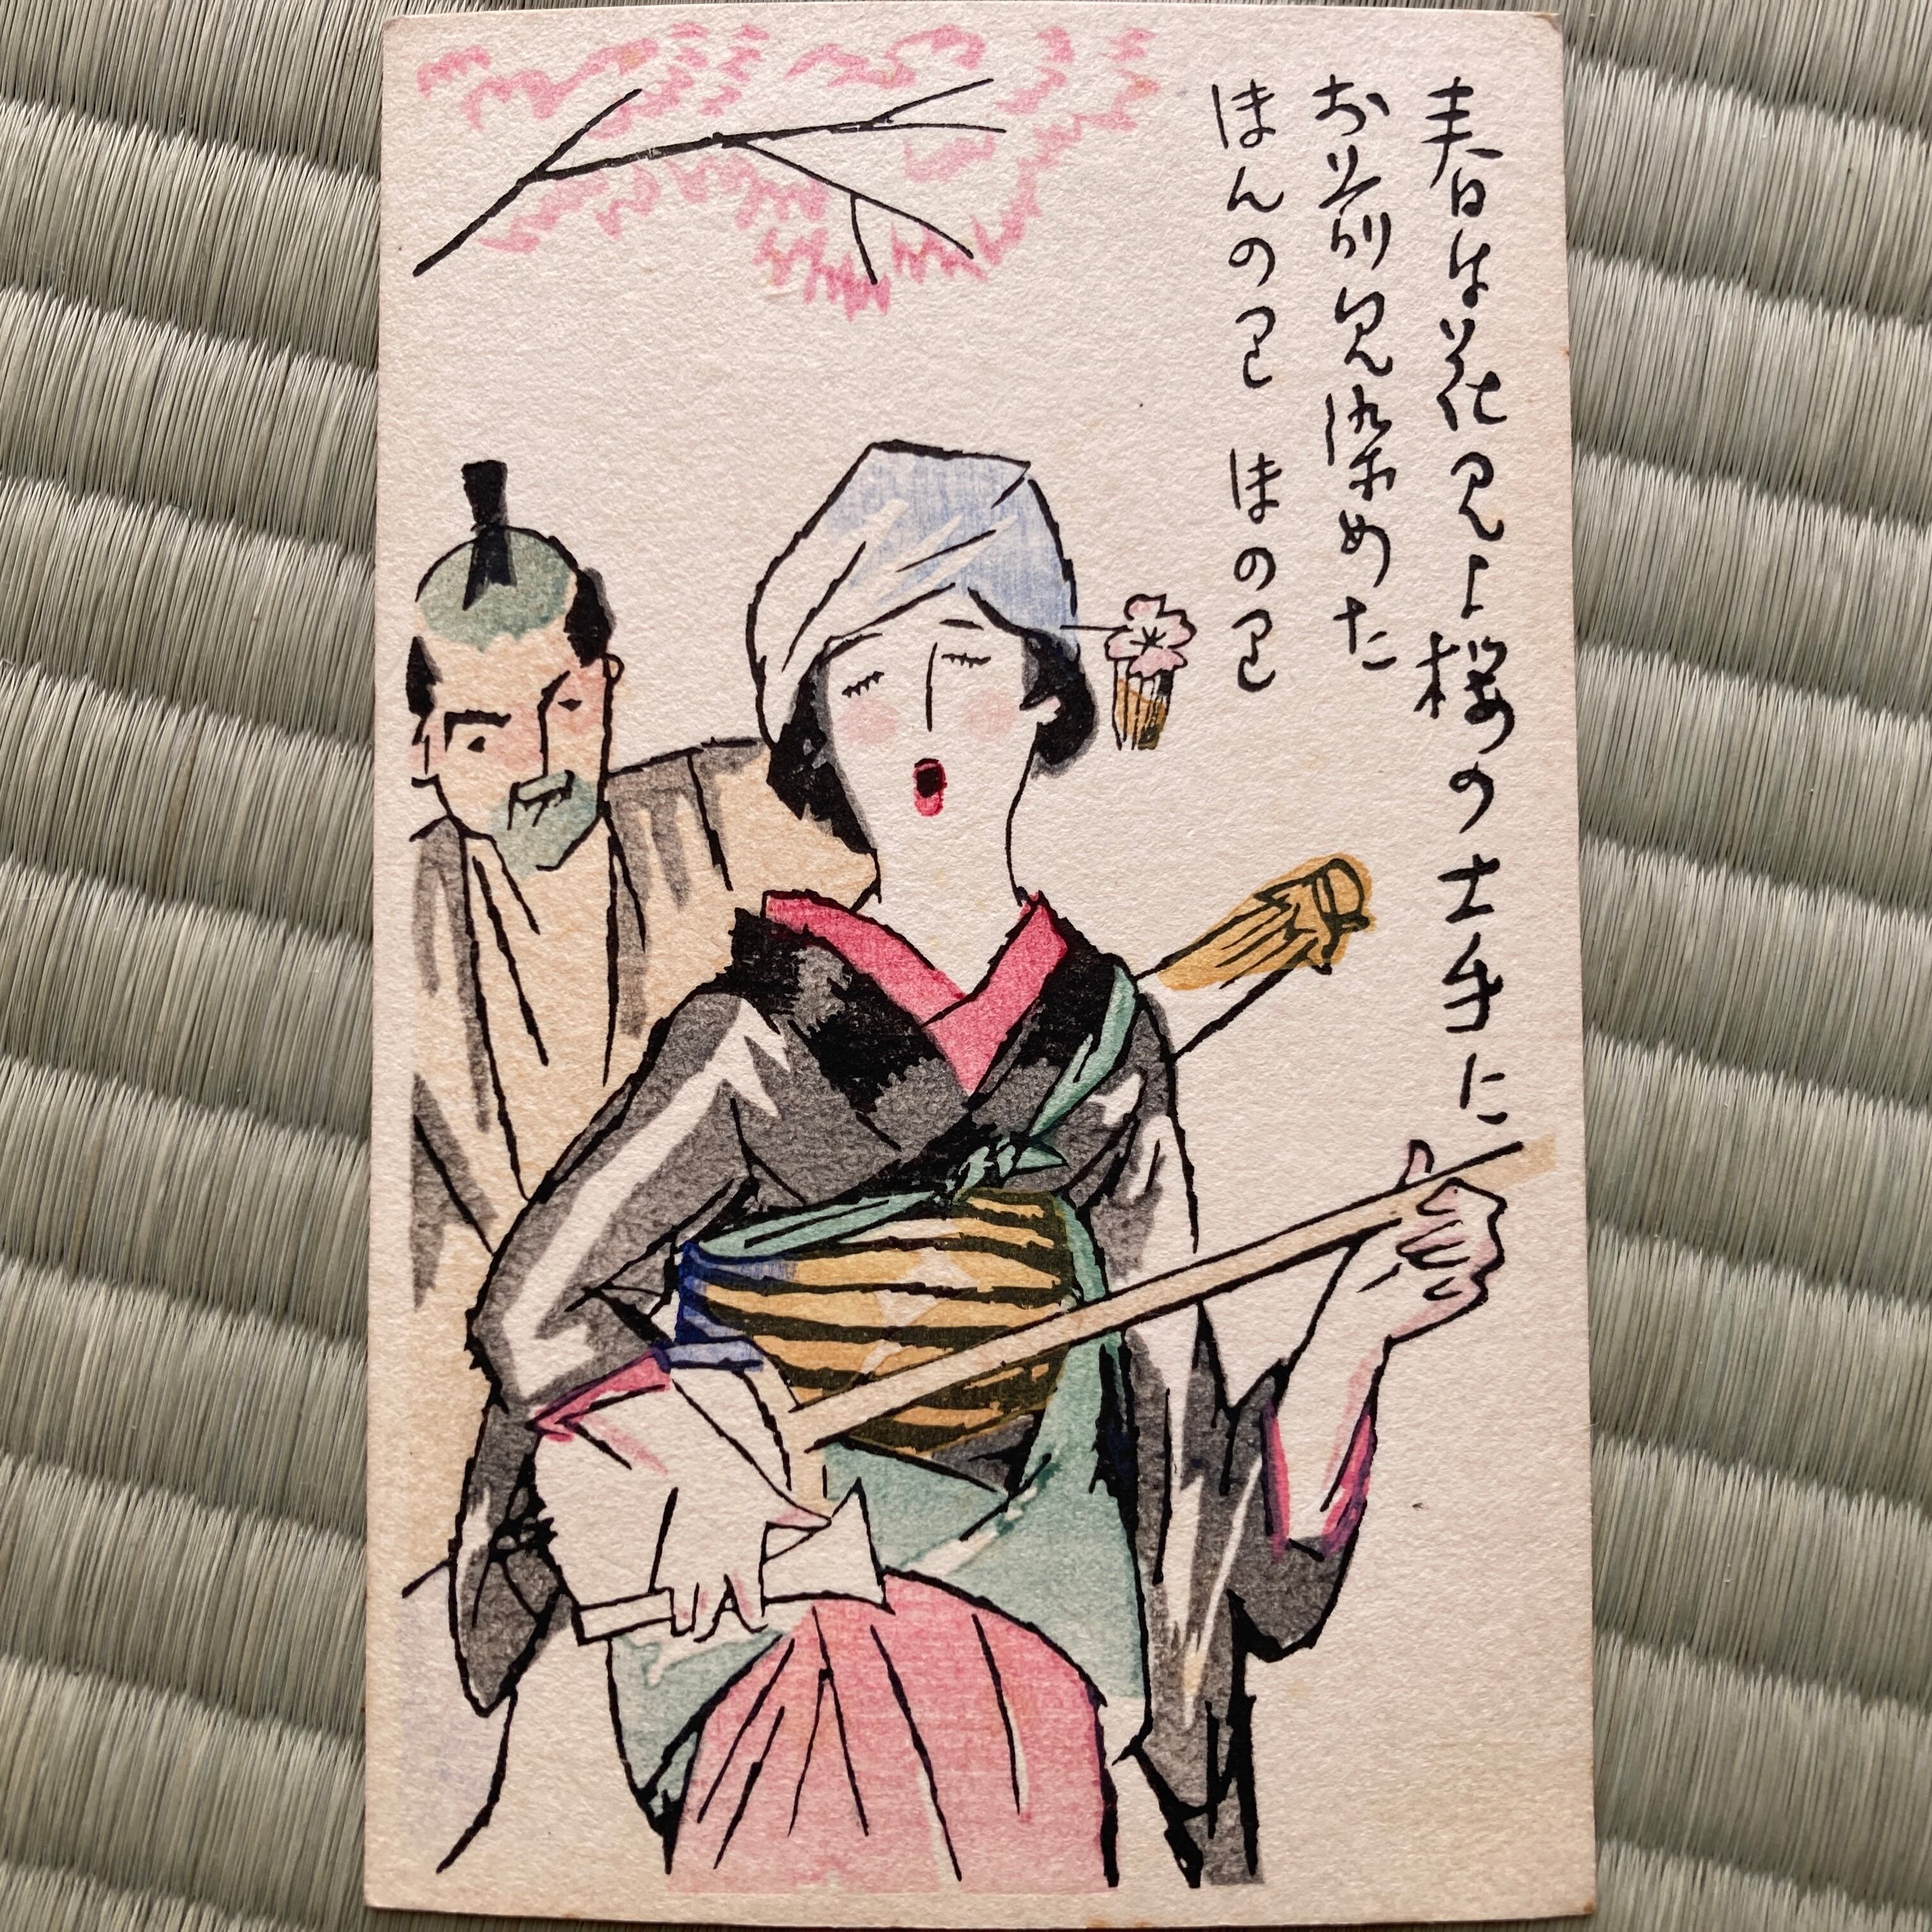 春は花見よ桜の土手に
お前見染めた
ほんのりほのり